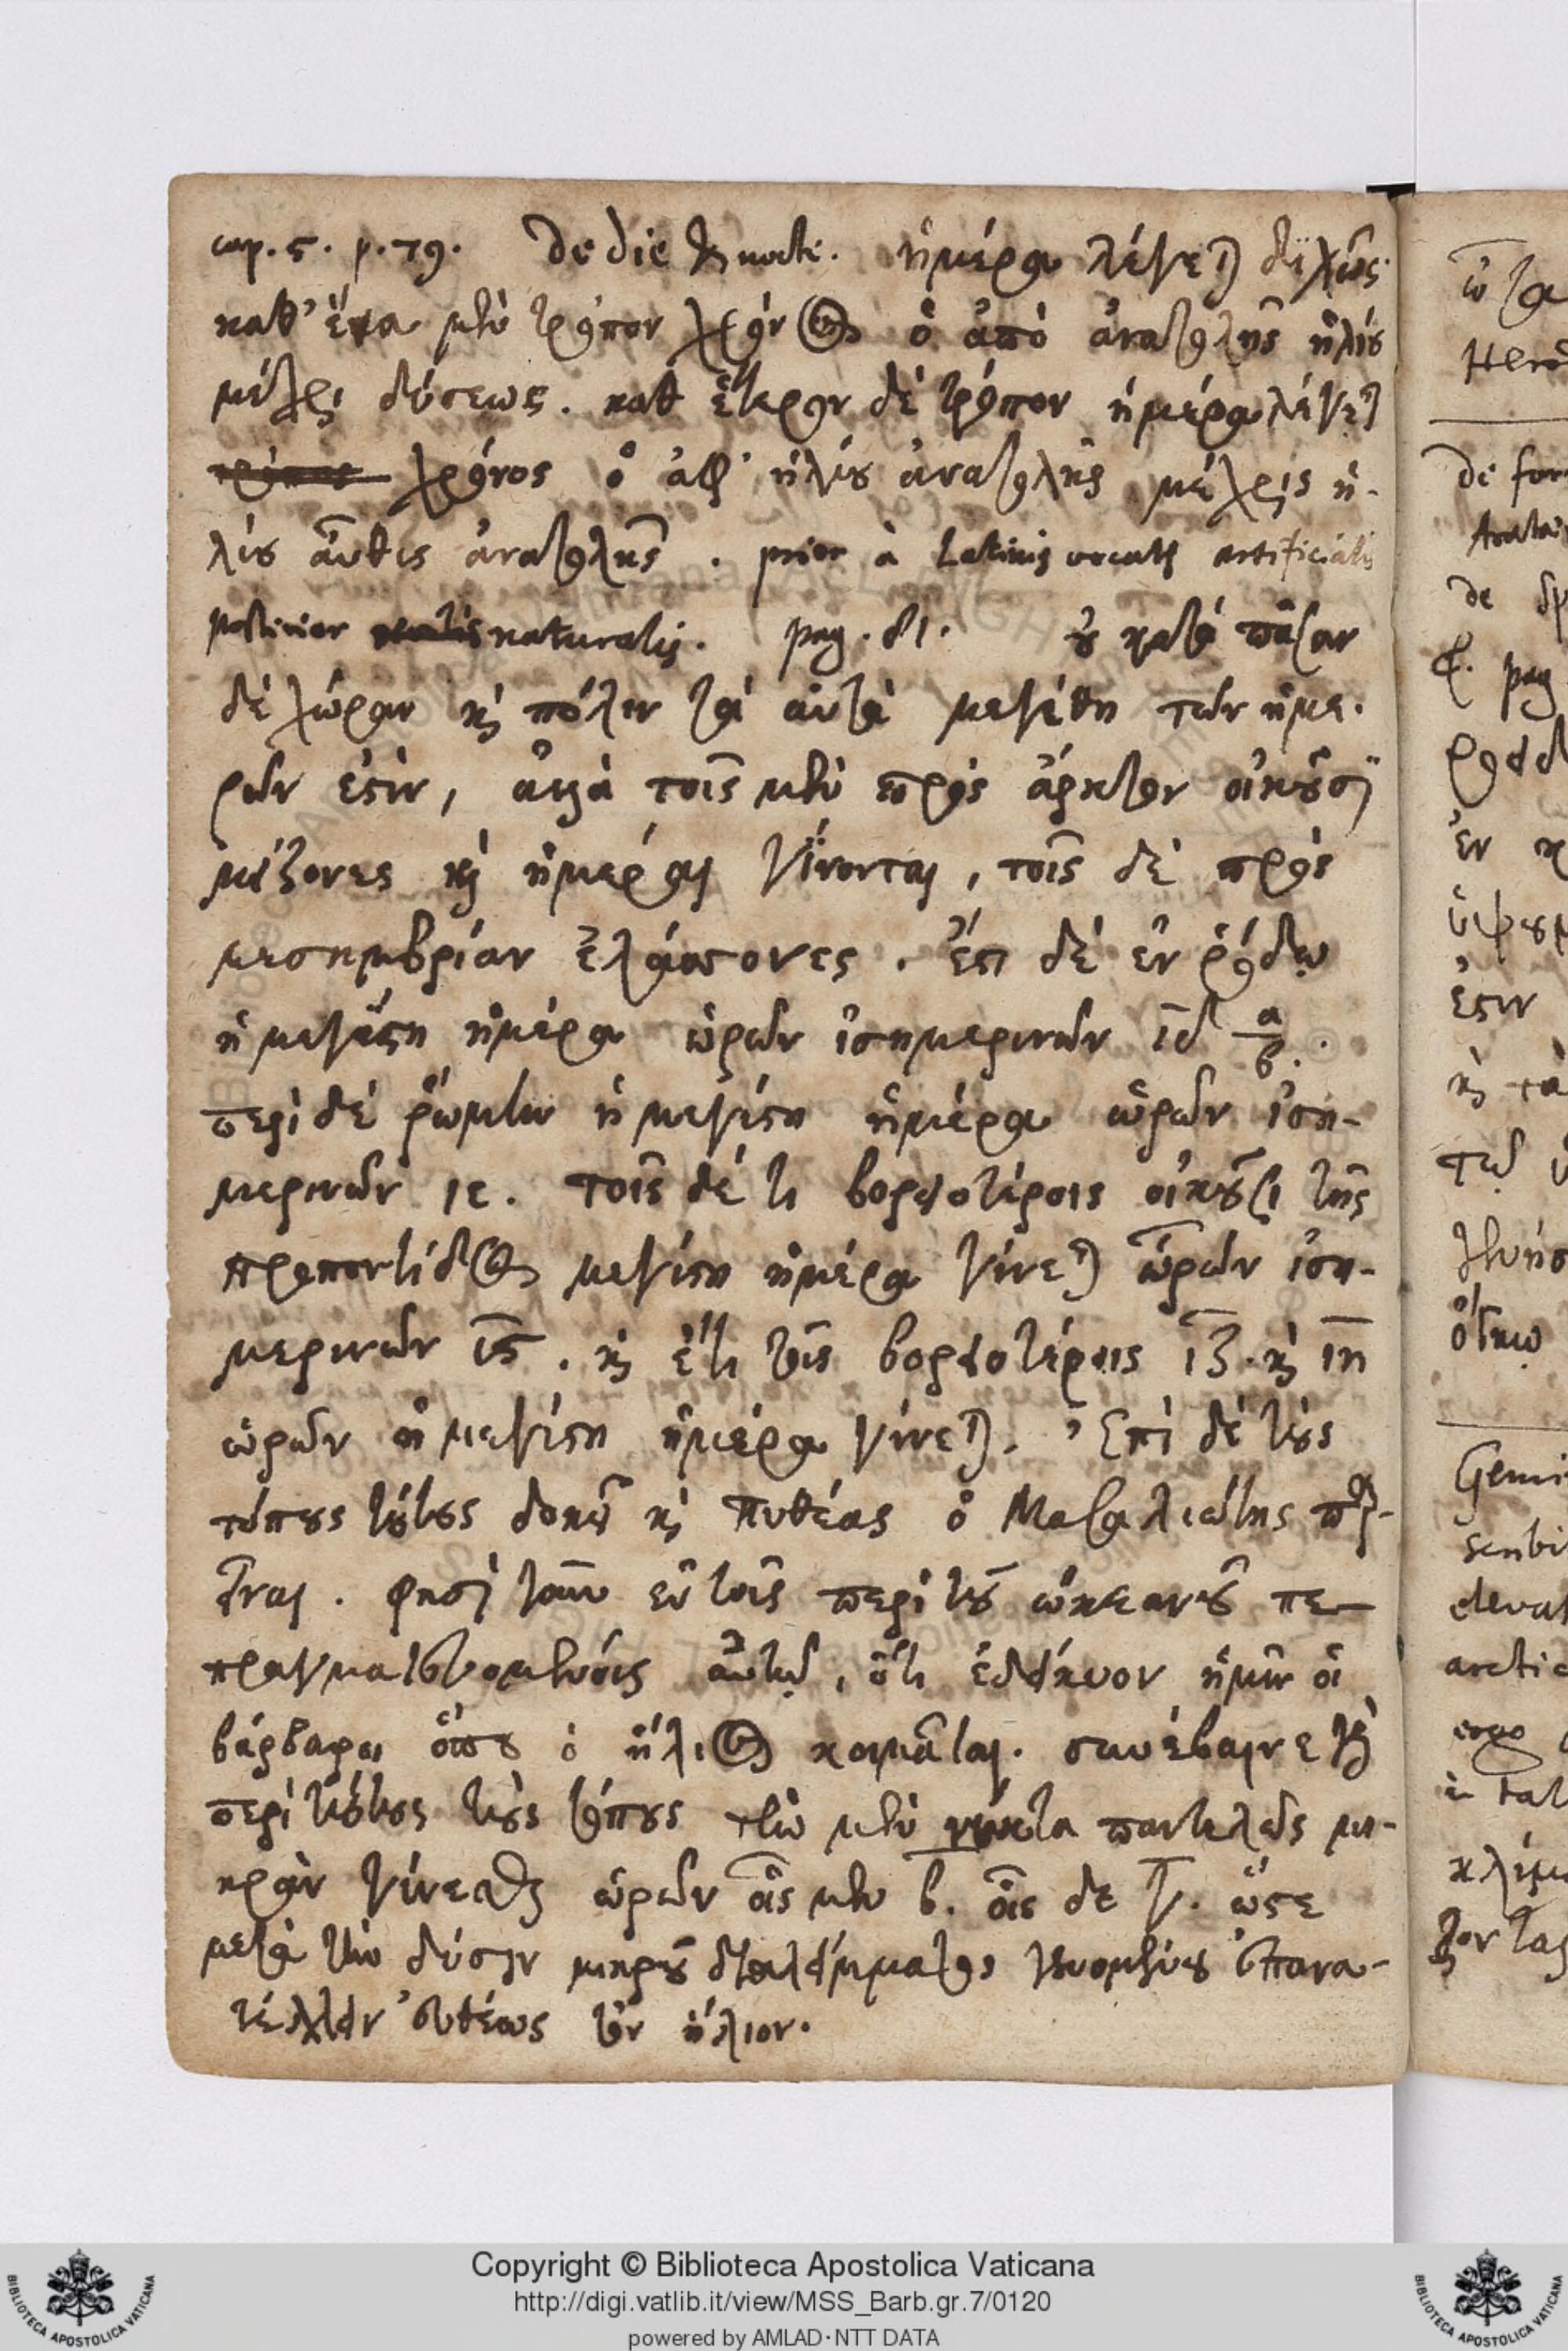 cap. 5. p. 79. De die & nocte. ἡμέρα λέγεται διχῶς·
καθ' ἕνα μὲν τρόπον χρόνος ὁ ἀπὸ ἀνατολῆς ἡλίου
μέχρι δύσεως. καθ ἕτερον δὲ τρόπον ἡμέρα λέγεται
χρόνος ὁ ἀφ' ἡλίου ἀνατολῆς μέχρις ἡ-
λίου αὖθις ἀνατολῆς. prior à Latinis vocatur artificialis
posterior naturalis. pag. 81. οὐ κατὰ πᾶσαν
δὲ χώραν καὶ πόλιν τὰ αὐτὰ μεγέθη τῶν ἡμε-
ρῶν ἐστὶν, ἀλλὰ τοῖς μὲν πρὸς ἄρκτον οἰκοῦσι
μείζονες αἱ ἡμέραι γίνονται, τοῖς δὲ πρὸς
μεσημβρίαν ἐλάσσονες. ἔστι δὲ ἐν ῥόδῳ
ἡ μεγίστη ἡμέρα ὡρῶν ἰσημερινῶν ιδ α/β.
περὶ δὲ ῥώμην ἡ μεγίστη ἡμέρα ὡρῶν ἰση-
μερινῶν ιε. τοῖς δέ τι βορειοτέροις οἰκοῦσι τῆς
προποντίδος μεγίστη ἡμέρα γίνεται ὡρῶν ἰση-
μερινῶν ις. καὶ ἔτι τοῖς βορειοτέροις ιζ. καὶ ιη
ὡρῶν ἡ μεγίστη ἡμέρα γίνεται. Ἐπὶ δὲ τοὺς
τόπους τούτους δοκεῖ καὶ Πυθέας ὁ Μασσαλιώτης παρ-
εῖναι. φησὶ γοῦν ἐν τοῖς περὶ τοῦ ὠκεανοῦ πε-
πραγματευομένοις αὐτῷ, ὅτι ἐδείκνυον ἡμῖν οἱ
βάρβαροι ὅπου ὁ ἥλιος κοιμᾶται. συνέβαινε γὰρ
περὶ τούτους τοὺς τόπους τὴν μὲν νύκτα παντελῶς μι-
κρὰν γίνεσθαι ὡρῶν οἷς μὲν β. οἷς δε γ. ὥστε
μετὰ τὴν δύσιν μικροῦ διαλείμματος γενομένου ἐπανα-
τέλλειν εὐθέως τὸν ἥλιον.
Copyright © Biblioteca Apostolica Vaticana
http://digi.vatlib.it/view/MSS_Barb.gr.7/0120
powered by AMLAD·NTT DATA